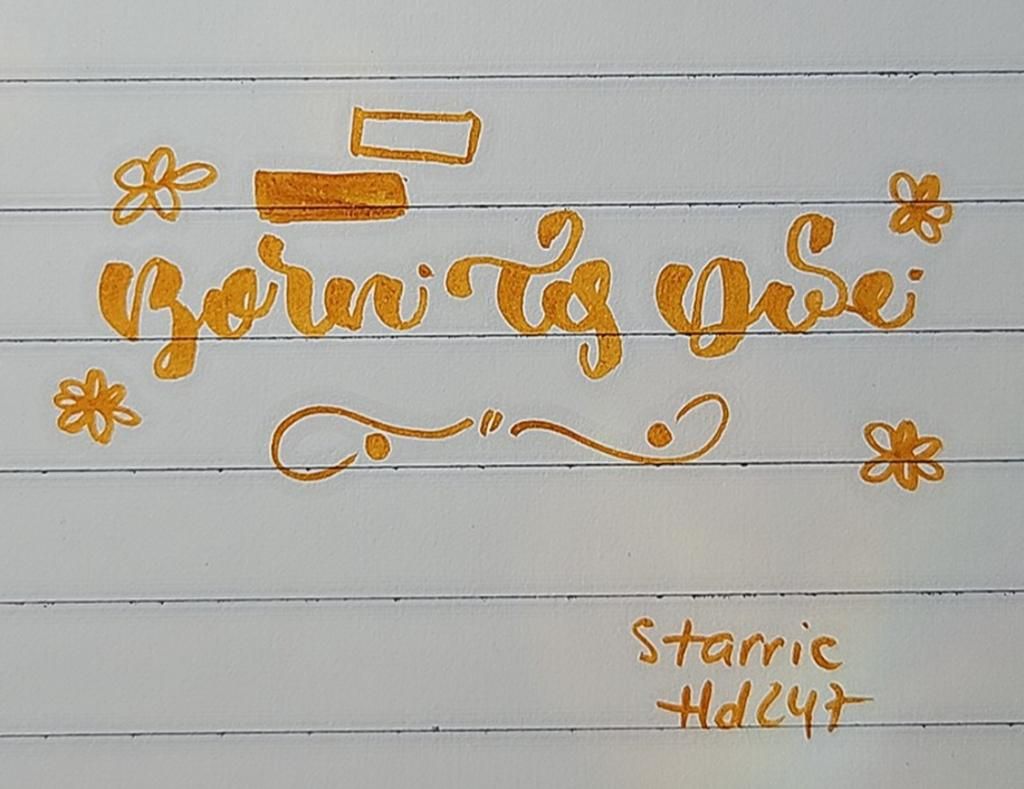 Born to
Starric
Hd247